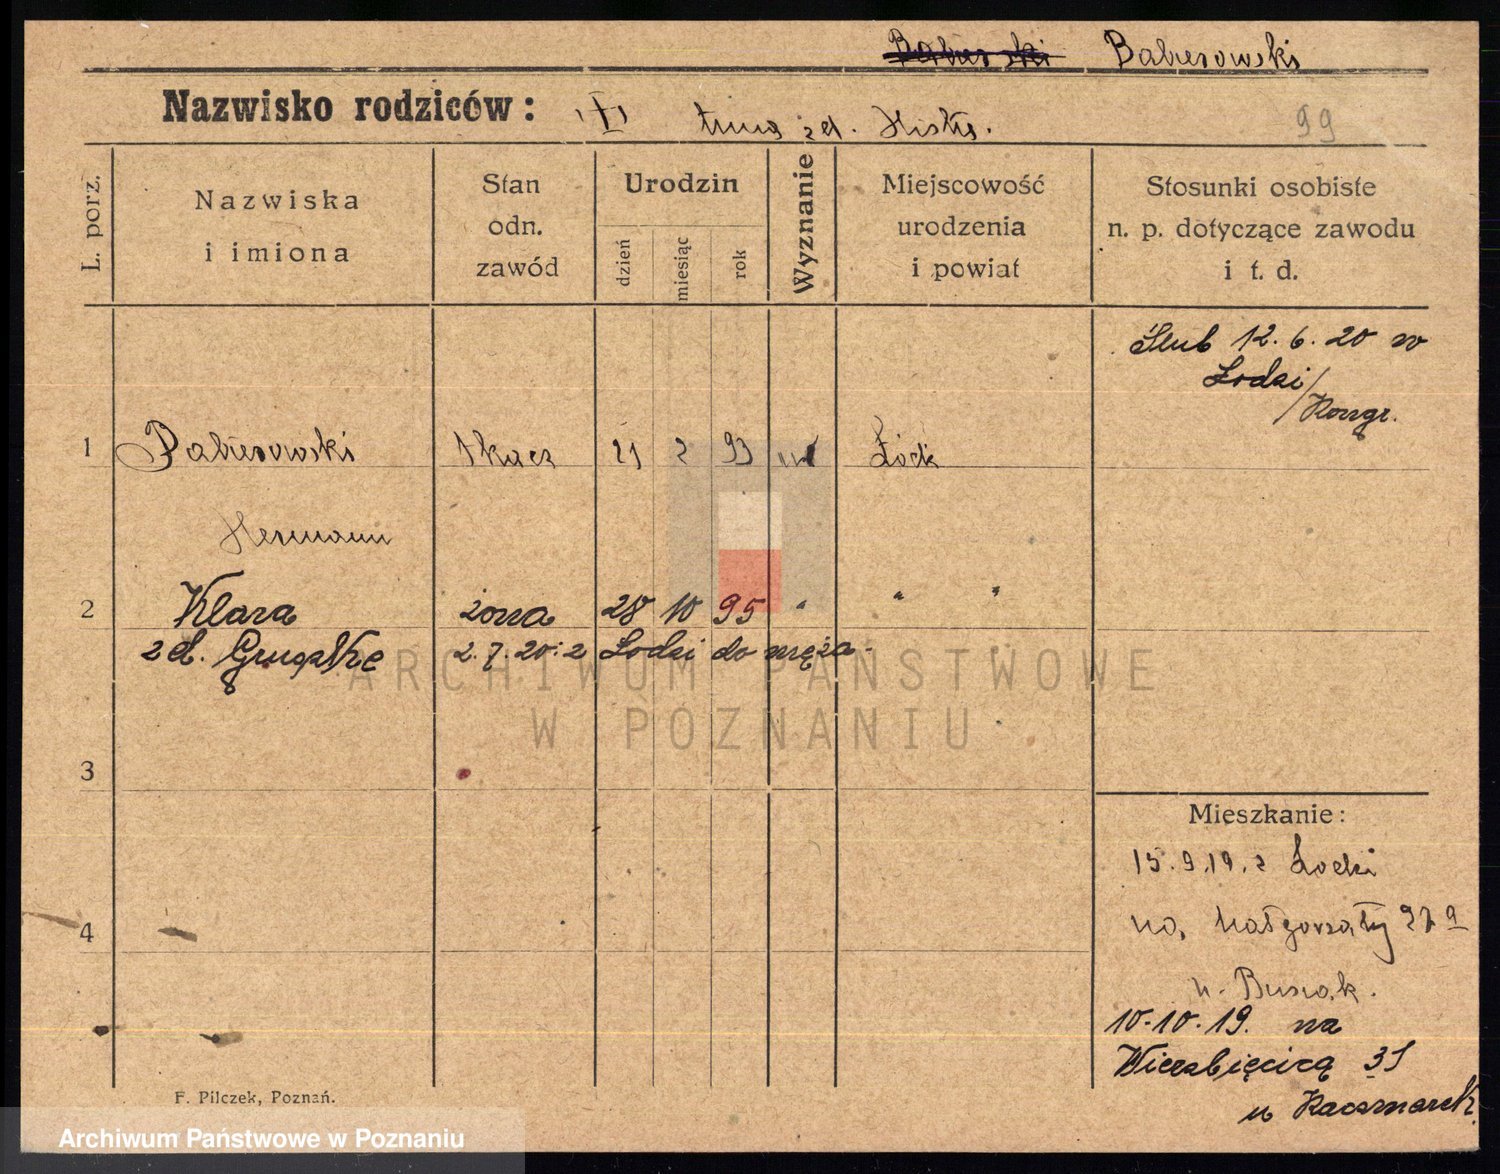 Babierowski
Nazwisko rodziców: zd.
99
L. porz.
Nazwiska
i imiona
Stan
odn.
zawód
Urodzin
dzień
miesiąc
rok
Wyznanie
Miejscowość
urodzenia
i powiat
Stosunki osobiste
n. p. dotyczące zawodu
i t. d.
Ślub 12.6.20 w
Łodzi/
Kongr.
1 tkacz 21 2 93 Łódź
Hermann
2 Klara żona 28 10 95 " " "
zd. 2.7.20. z Łodzi do męża.
3
4
Mieszkanie:
15.9.19. z Łodzi
na Małgorzaty
u.
10.10.19. na
Wierzbięcicą 31
u Kaczmarek.
F. Pilczek, Poznań.
ARCHIWUM PAŃSTWOWE
W POZNANIU
Archiwum Państwowe w Poznaniu